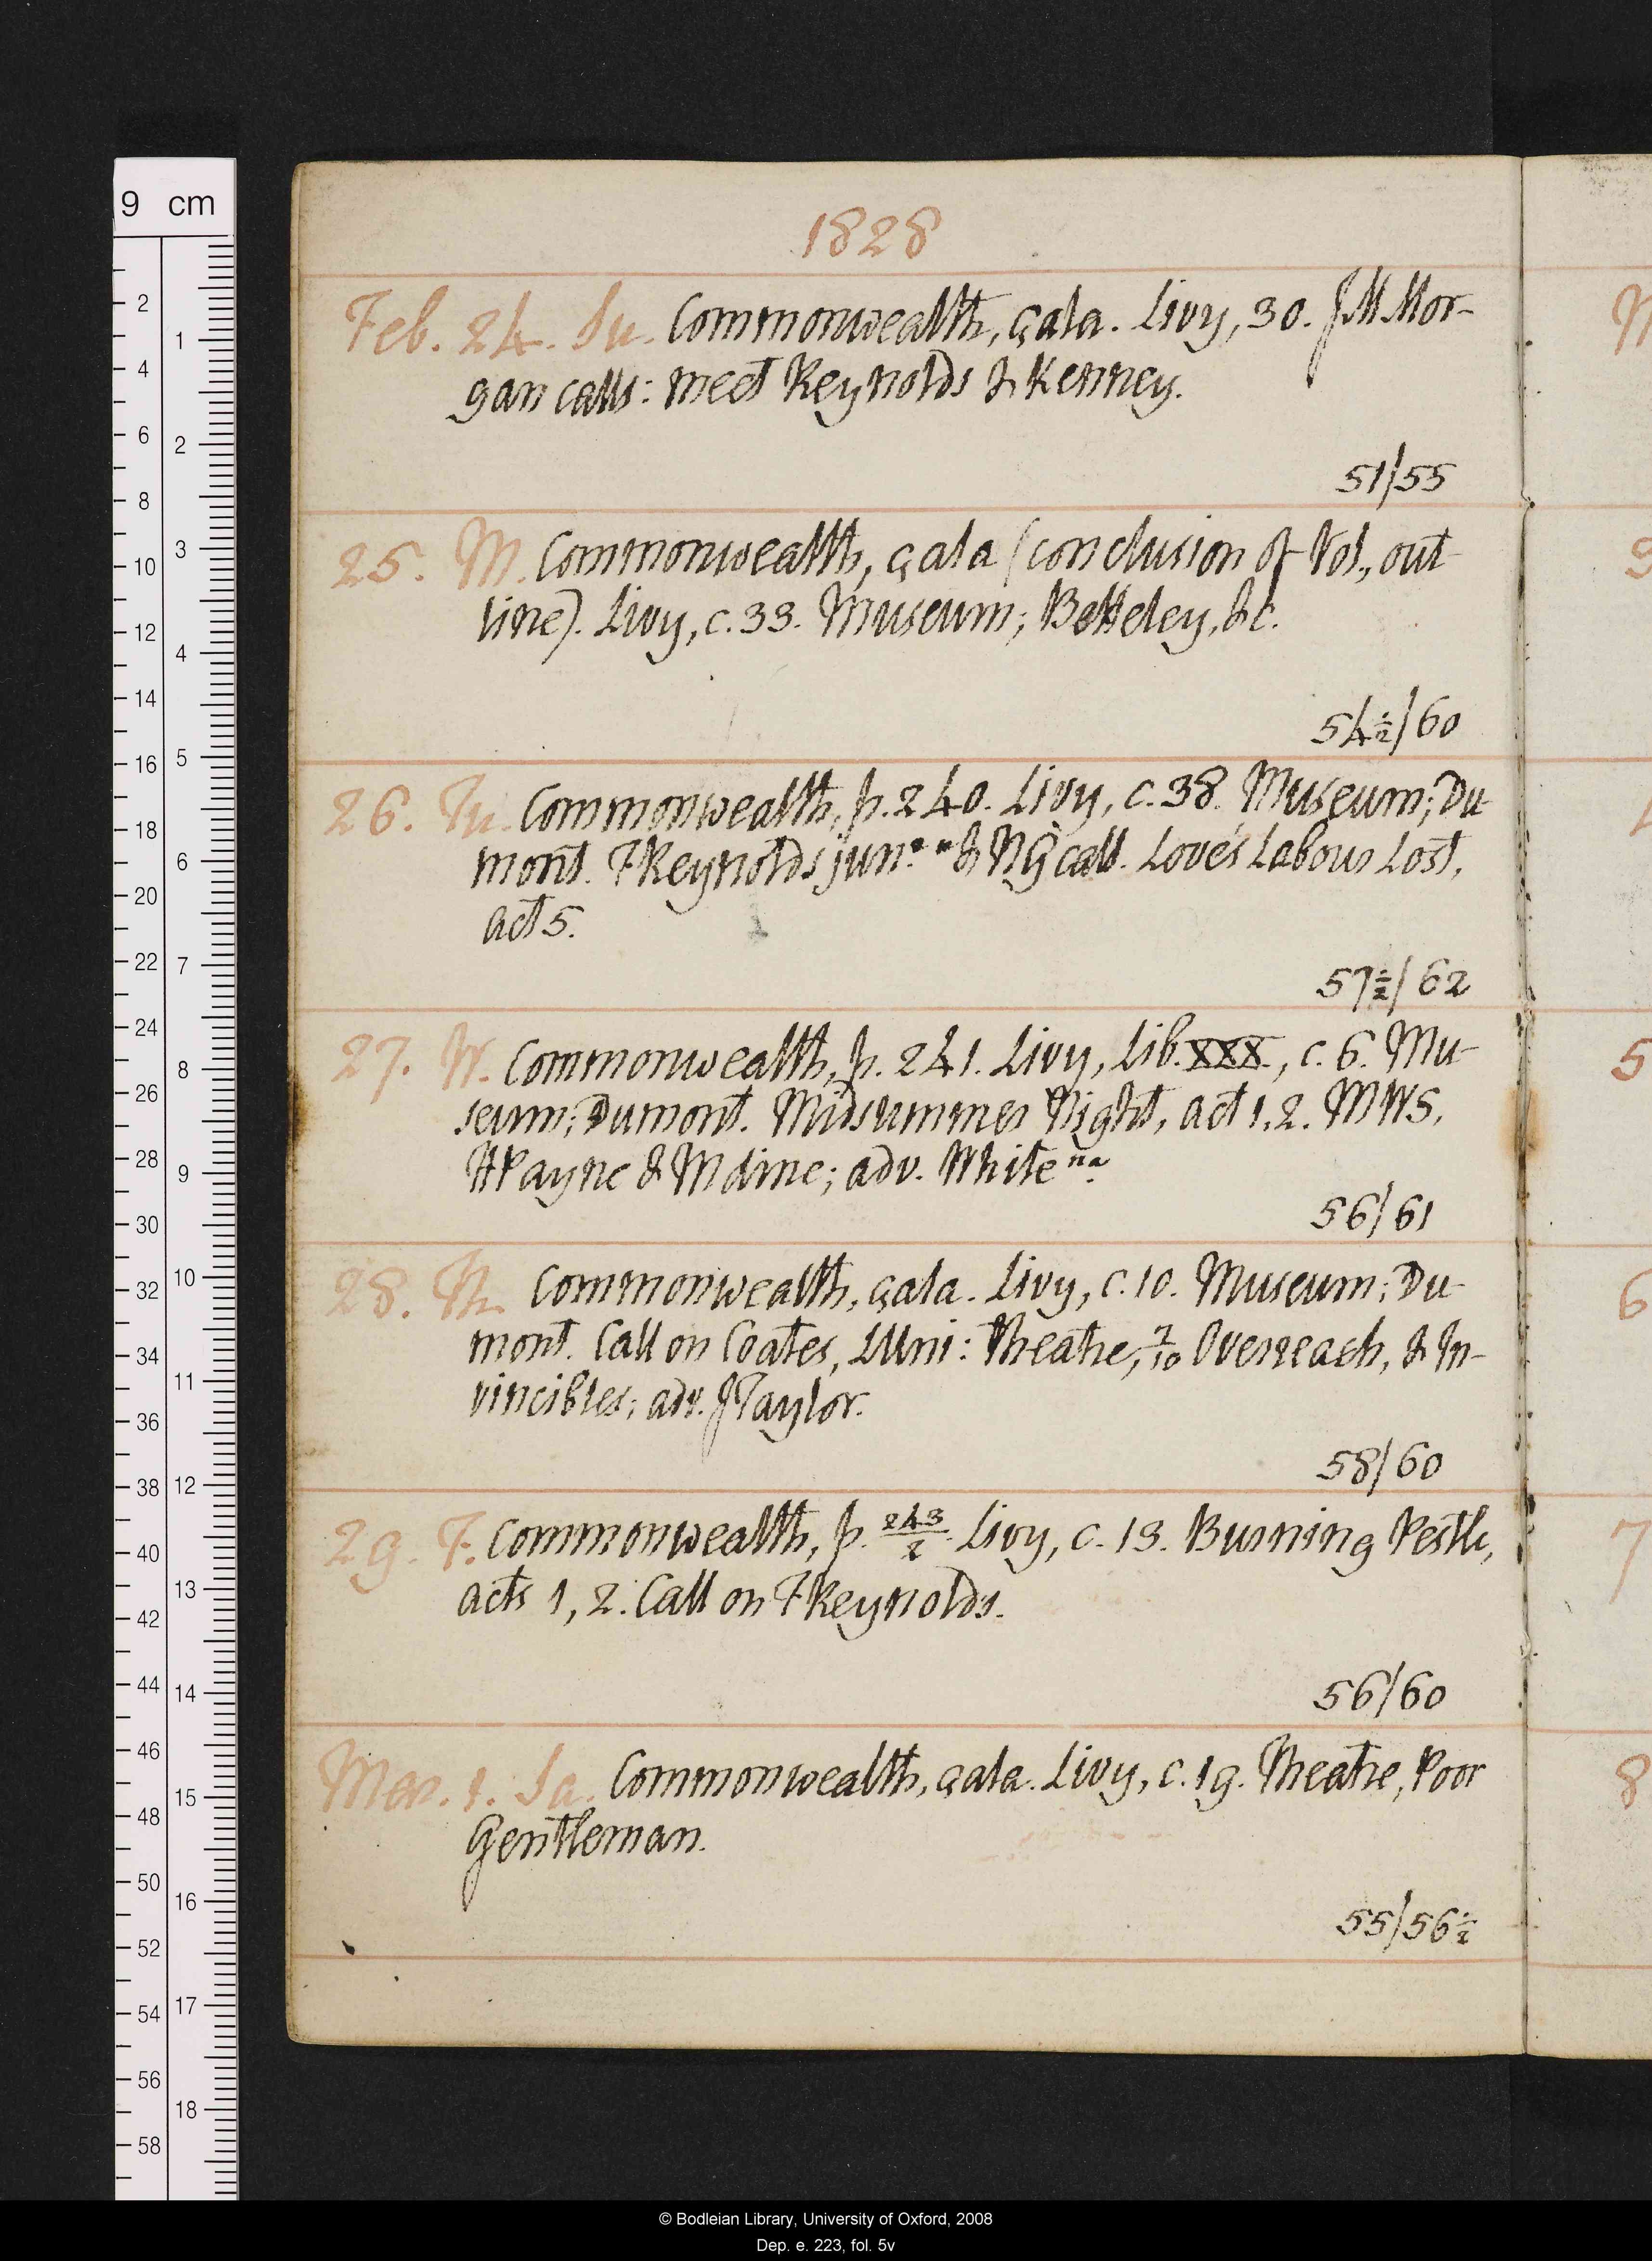 1828
Feb. 24. Su. Commonwealth, çala. Livy, 30. JM Mor-
gan calls: meet Reynolds & Kenney.
51/55
25. M. Commonwealth, çala (conclusion of Vol., out
line). Livy, c. 33. Museum; Betteley, &c.
54½/60
26. Tu. Commonwealth, p. 240. Livy, c. 38. Museum; Du-
mont. FReynolds jun. na & NG call. Love's Labour Lost,
act 5.
57½/62
27. W. Commonwealth, p. 241. Livy, Lib. XXX., c. 6. Mu-
seum; Dumont. Midsummer Night, act 1, 2. MWS,
HPayne & Mdme; adv. White na.
56/61
28. Th. Commonwealth, çala. Livy, c. 10. Museum; Du-
mont. Call on Coates, LUni: Theatre, 7/10 Overreach, & In-
vincibles; adv. JTaylor.
58/60
29. F. Commonwealth, p. 243/2. Livy, c. 13. Burning Pestle,
acts 1, 2. Call on FReynolds.
56/60
Mar. 1. Sa. Commonwealth, çala. Livy, c. 19. Theatre, Poor
Gentleman.
55/56½
© Bodleian Library, University of Oxford, 2008
Dep. e. 223, fol. 5v